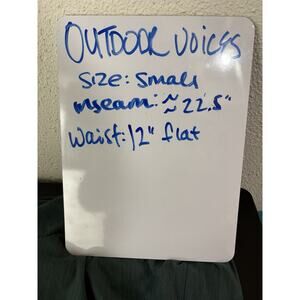 OUTDOOR VOICES
SIZE: Small
Inseam: ≈ 22.5"
Waist: 12" flat